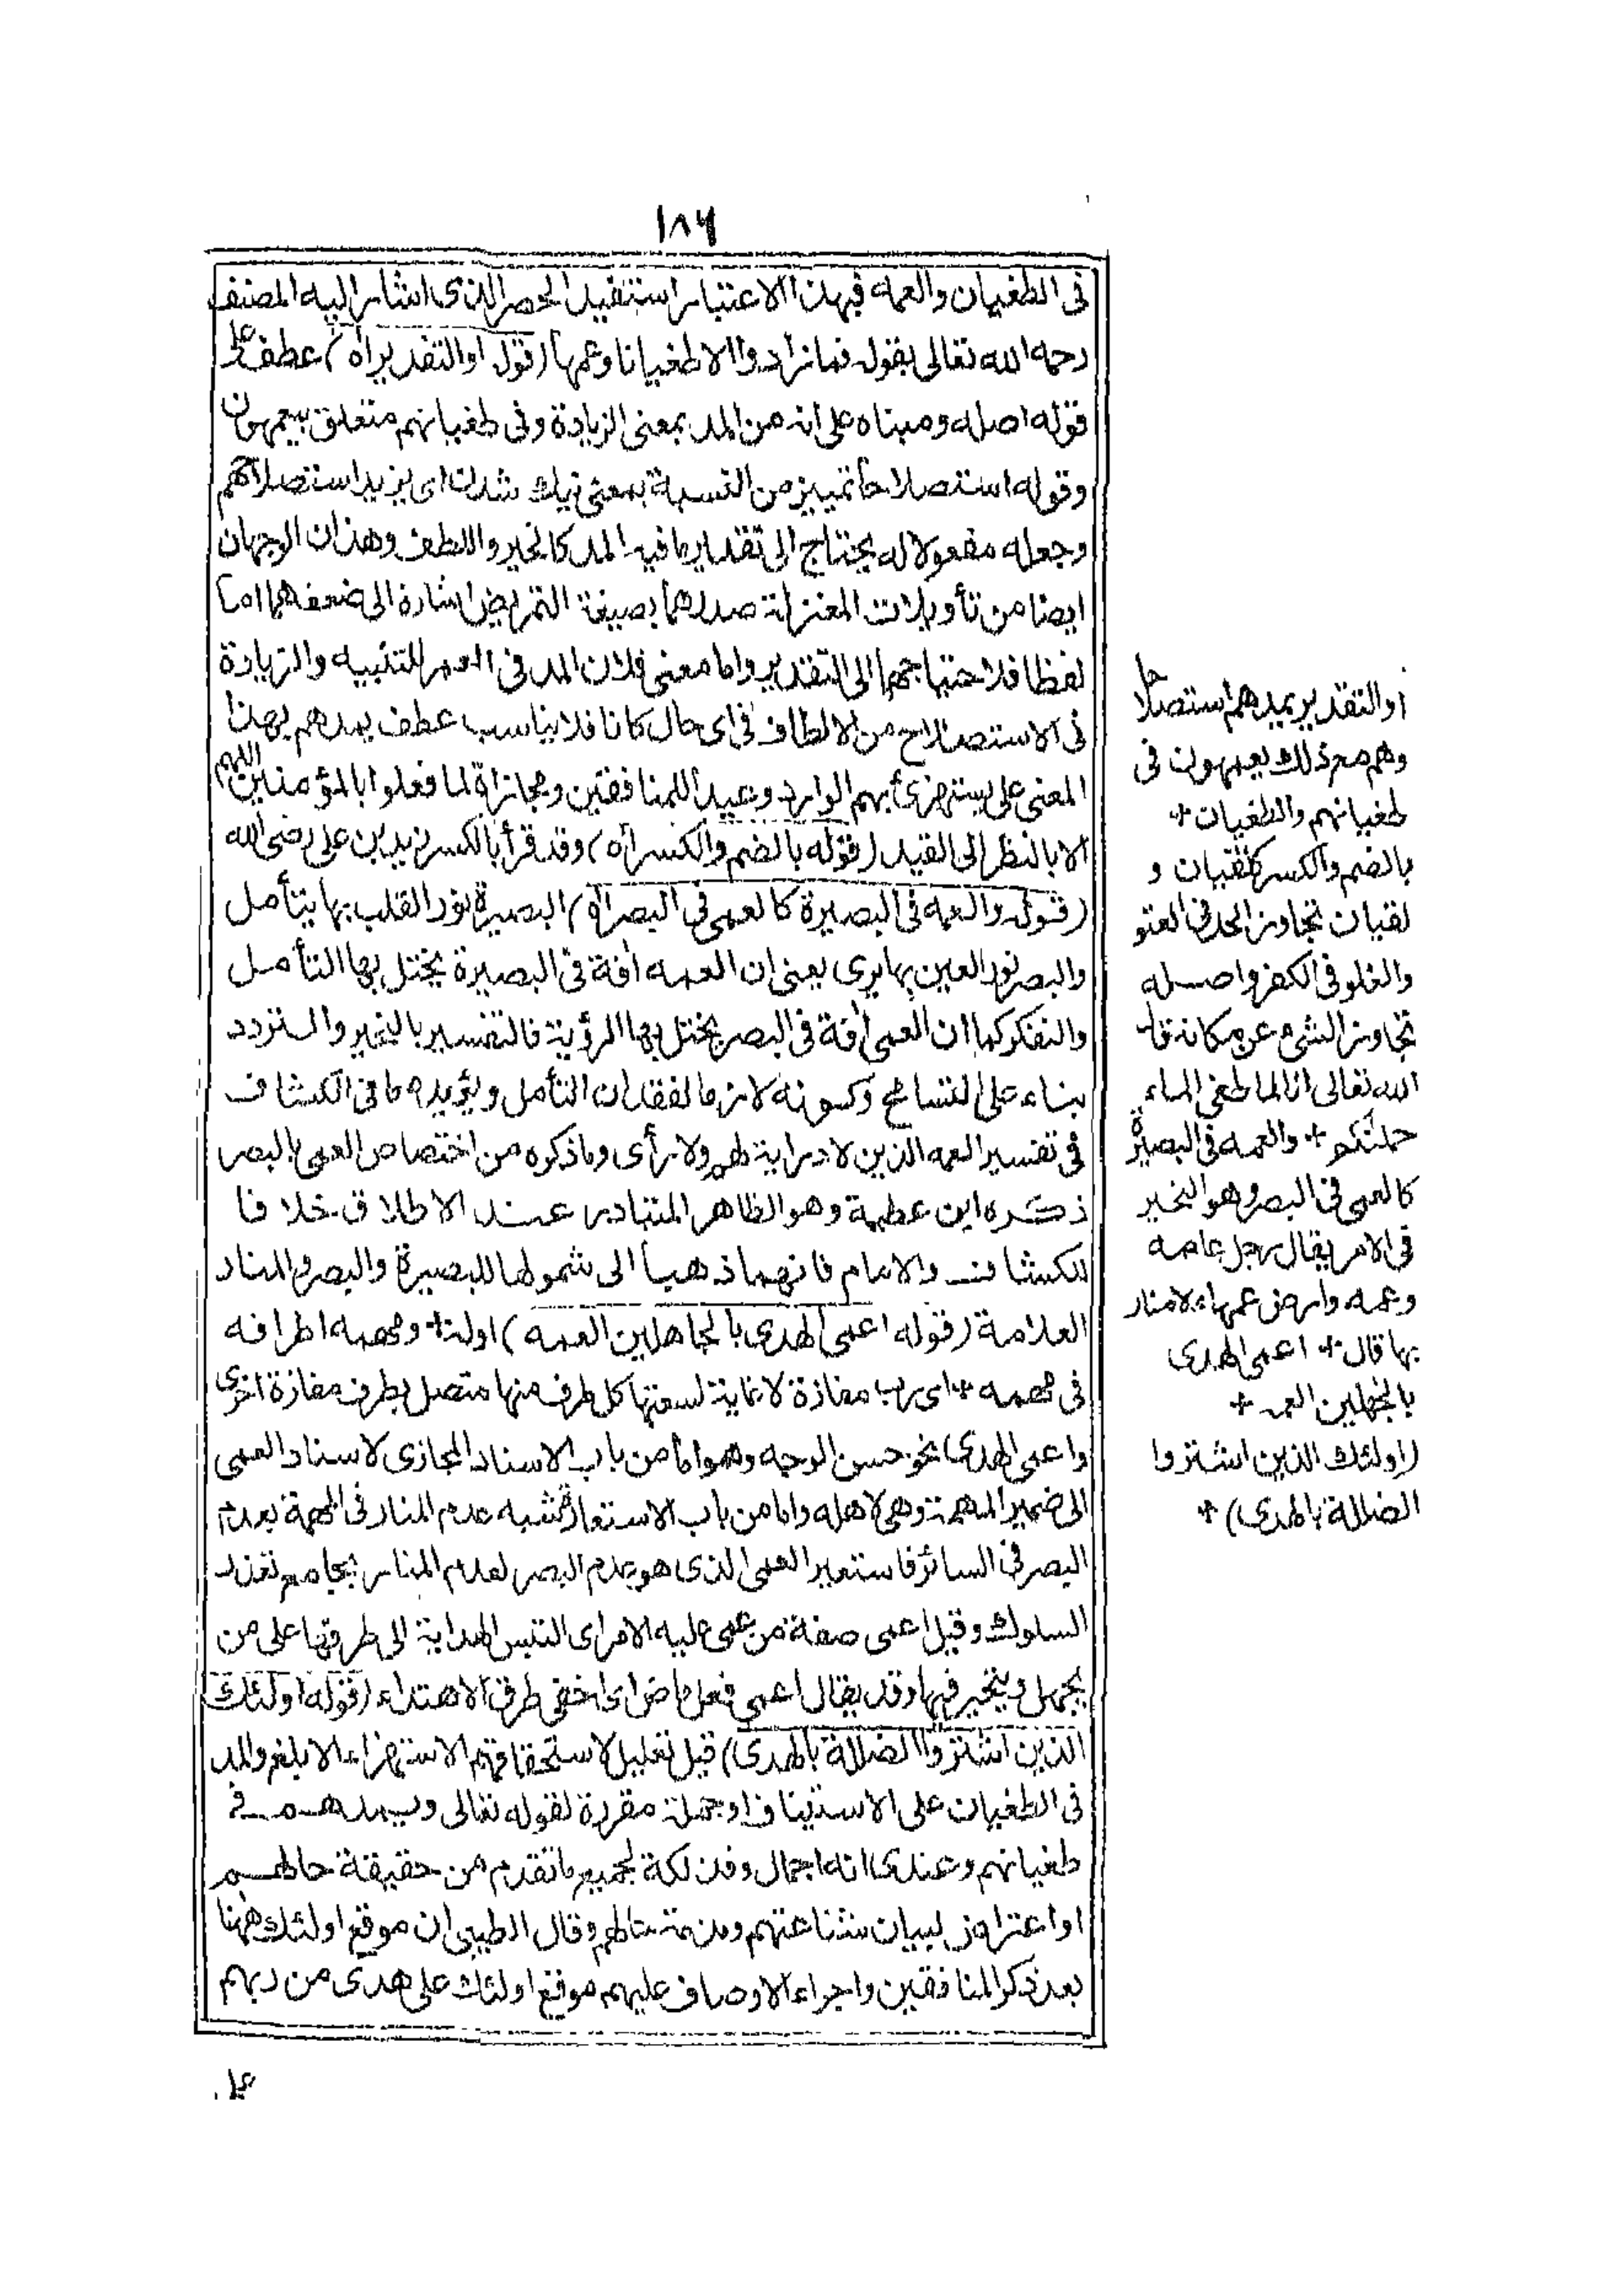 ١٨٦
فى الطغيان والعمه فبهذا الاعتبار استفيد الحصر الذى اشار اليه المصنف
رحمه الله تعالى بقوله فما زادوا الا طغيانا وعمها (قوله او التقدير اه) عطف على
قوله اصله ومبناه على انه من المد بمعنى الزيادة وفى طغيانهم متعلق بيعمهون
وقوله استصلاحا تمييز من النسبة بمعنى يزيد استصلاحهم
وجعله مفعولا له يحتاج الى تقدير ما فيه المد كالخير واللطف وهذان الوجهان
ايضا من تأويلات المعتزلة صدرهما بصيغة التمريض اشارة الى ضعفهما اما
لفظا فلاحتياجهما الى التقدير واما معنى فلان المد فى العمر للتنبيه والزيادة
فى الاستصلاح من الالطاف فى اى حال كانا فلا يناسب عطف يمدهم بهذا
المعنى على يستهزئ بهم الوارد وعيدا للمنافقين ومجازاة لما فعلوا بالمؤمنين اللهم
الا بالنظر الى القيد (قوله بالضم والكسر اه) وقد قرأ بالكسر زيد بن على رضى الله
(قوله والعمه فى البصيرة كالعمى فى البصر اه) البصيرة نور القلب بها يتأمل
والبصر نور العين بها يرى يعنى ان العمه افة فى البصيرة يختل بها التأمل
والتفكر كما ان العمى افة فى البصر يختل بها الرؤية فالتفسير بالتحير والتردد
بناء على التسامح وكونه لازما لفقدان التأمل ويؤيده ما فى الكشاف
فى تفسير العمه الذين لا دراية لهم ولا رأى وما ذكره من اختصاص العمى بالبصر
ذكره ابن عطية وهو الظاهر المتبادر عند الاطلاق خلافا
للكشاف والامام فانهما ذهبا الى شمولها للبصيرة والبصر والمنار
العلامة (قوله اعمى الهدى بالجاهلين العمه) اوله + ومهمه اطرافه
فى مهمه + اى رب مفازة لا غاية لسعتها كل طرف منها متصل بطرف مفازة اخرى
واعمى الهدى نحو حسن الوجه وهو اما من باب الاسناد المجازى لاسناد العمى
الى ضمير المهمة وهى لاهله واما من باب الاستعارة شبه عدم المنار فى المهمة بعدم
البصر فى السائر فاستعير العمى الذى هو عدم البصر لعدم المنار بجامع تعذر
السلوك وقيل اعمى صفة من عمى عليه الامر اى التبس الهداية الى طرقها على من
يجهل ويتحير فيها وقد يقال اعمى فعل ماض اى اخفى طرق الاهتداء (قوله اولئك
الذين اشتروا الضلالة بالهدى) قيل تعليل لاستحقاقهم الاستهزاء الابلغ والمد
فى الطغيان على الاستيناف او جملة مقررة لقوله تعالى ويمدهم فى
طغيانهم وعندى انه اجمال وفذلكة لجميع ما تقدم من حقيقة حالهم
او اعتراض لبيان شناعتهم ومذمة حالهم وقال الطيبى ان موقع اولئك ههنا
بعد ذكر المنافقين واجراء الاوصاف عليهم موقع اولئك على هدى من ربهم
على
او التقدير يمدهم استصلاحا
وهم مع ذلك يعمهون فى
طغيانهم والطغيان +
بالضم والكسر كلقيان و
لقيان تجاوز الحد فى العتو
والغلو فى الكفر واصله
تجاوز الشئ عن مكانه قال
الله تعالى انا لما طغى الماء
حملنكم + والعمه فى البصيرة
كالعمى فى البصر وهو التحير
فى الامر يقال رجل عامه
وعمه وارض عمهاء لا منار
بها قال + اعمى الهدى
بالجهلين العمه +
(اولئك الذين اشتروا
الضلالة بالهدى) +